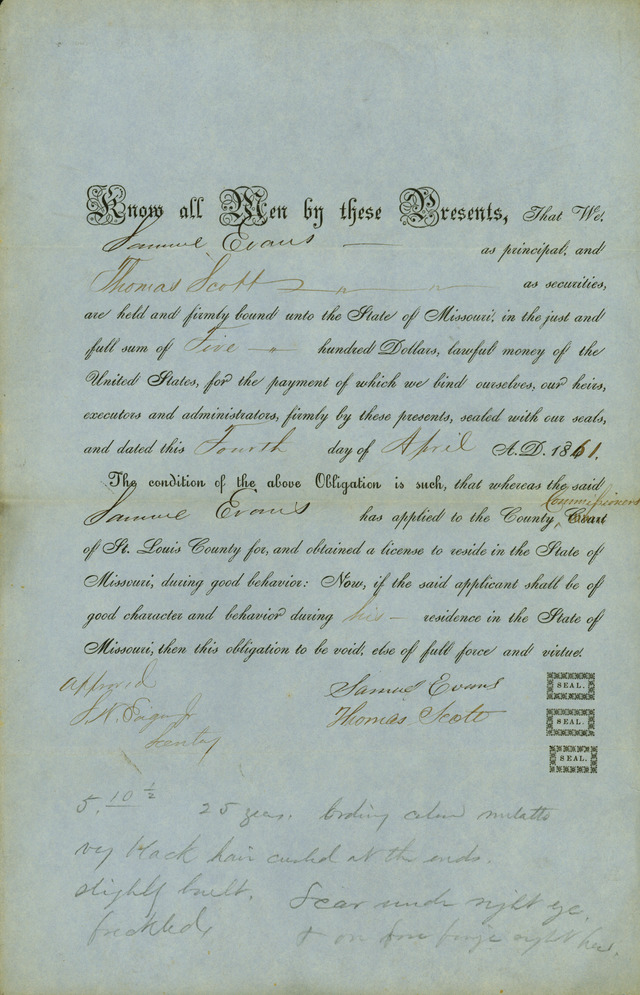 Know all Men by these Presents, That We,
Samuel Evans — as principal, and
Thomas Scott as securities,
are held and firmly bound unto the State of Missouri, in the just and
full sum of Five hundred Dollars, lawful money of the
United States, for the payment of which we bind ourselves, our heirs,
executors and administrators, firmly by these presents, sealed with our seals,
and dated this Fourth day of April A.D. 1861.
The condition of the above Obligation is such, that whereas the said
Commissioners
Samuel Evans has applied to the County Court
of St. Louis County for, and obtained a license to reside in the State of
Missouri, during good behavior: Now, if the said applicant shall be of
good character and behavior during his — residence in the State of
Missouri, then this obligation to be void, else of full force and virtue.
Approved
Samuel Evans SEAL.
Thomas Scott SEAL.
SEAL.
5. 10 ½ 25 years. mulatto
black hair curled at the ends.
slightly built. Scar under right eye.
freckled & on fore right